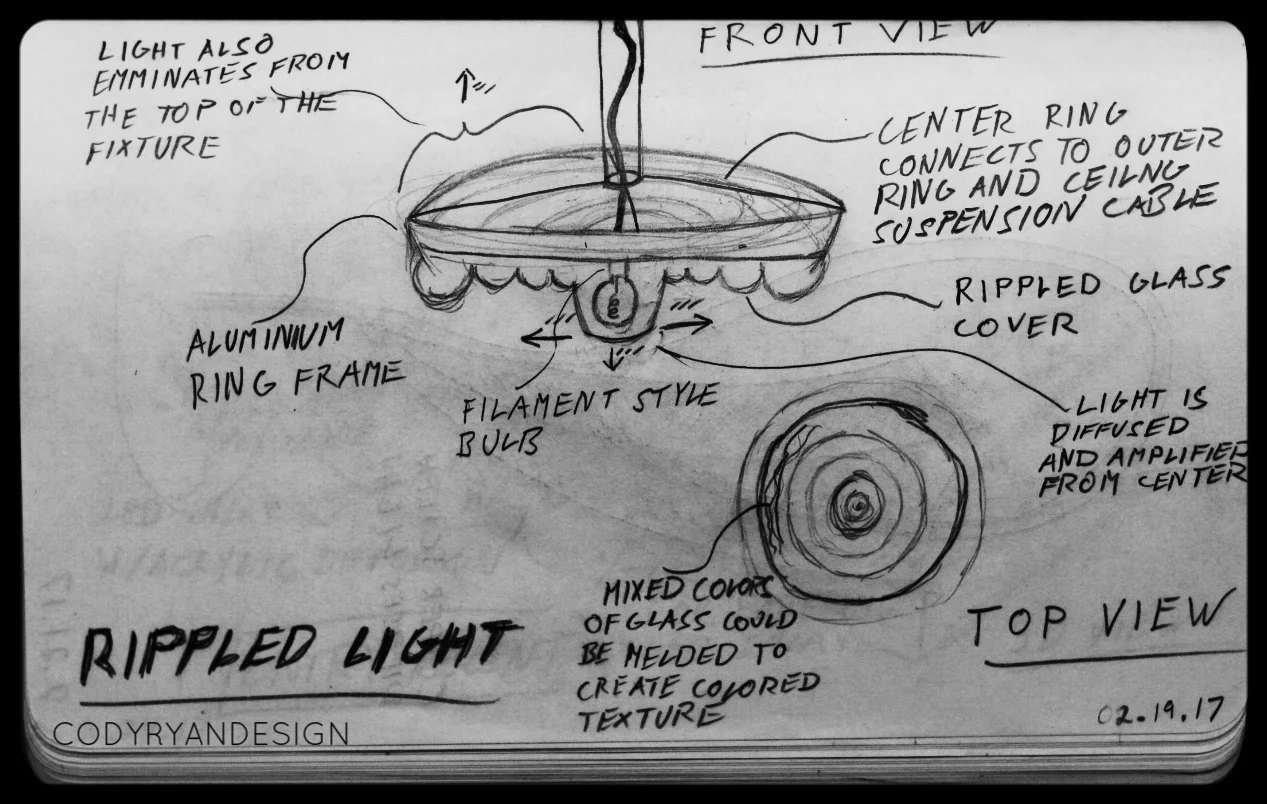 LIGHT ALSO
EMMINATES FROM
THE TOP OF THE
FIXTURE
FRONT VIEW
CENTER RING
CONNECTS TO OUTER
RING AND CEILNG
SUSPENSION CABLE
RIPPLED GLASS
COVER
ALUMINIUM
RING FRAME
FILAMENT STYLE
BULB
LIGHT IS
DIFFUSED
AND AMPLIFIED
FROM CENTER
MIXED COLORS
OF GLASS COULD
BE MELDED TO
CREATE COLORED
TEXTURE
TOP VIEW
RIPPLED LIGHT
02.19.17
CODYRYANDESIGN